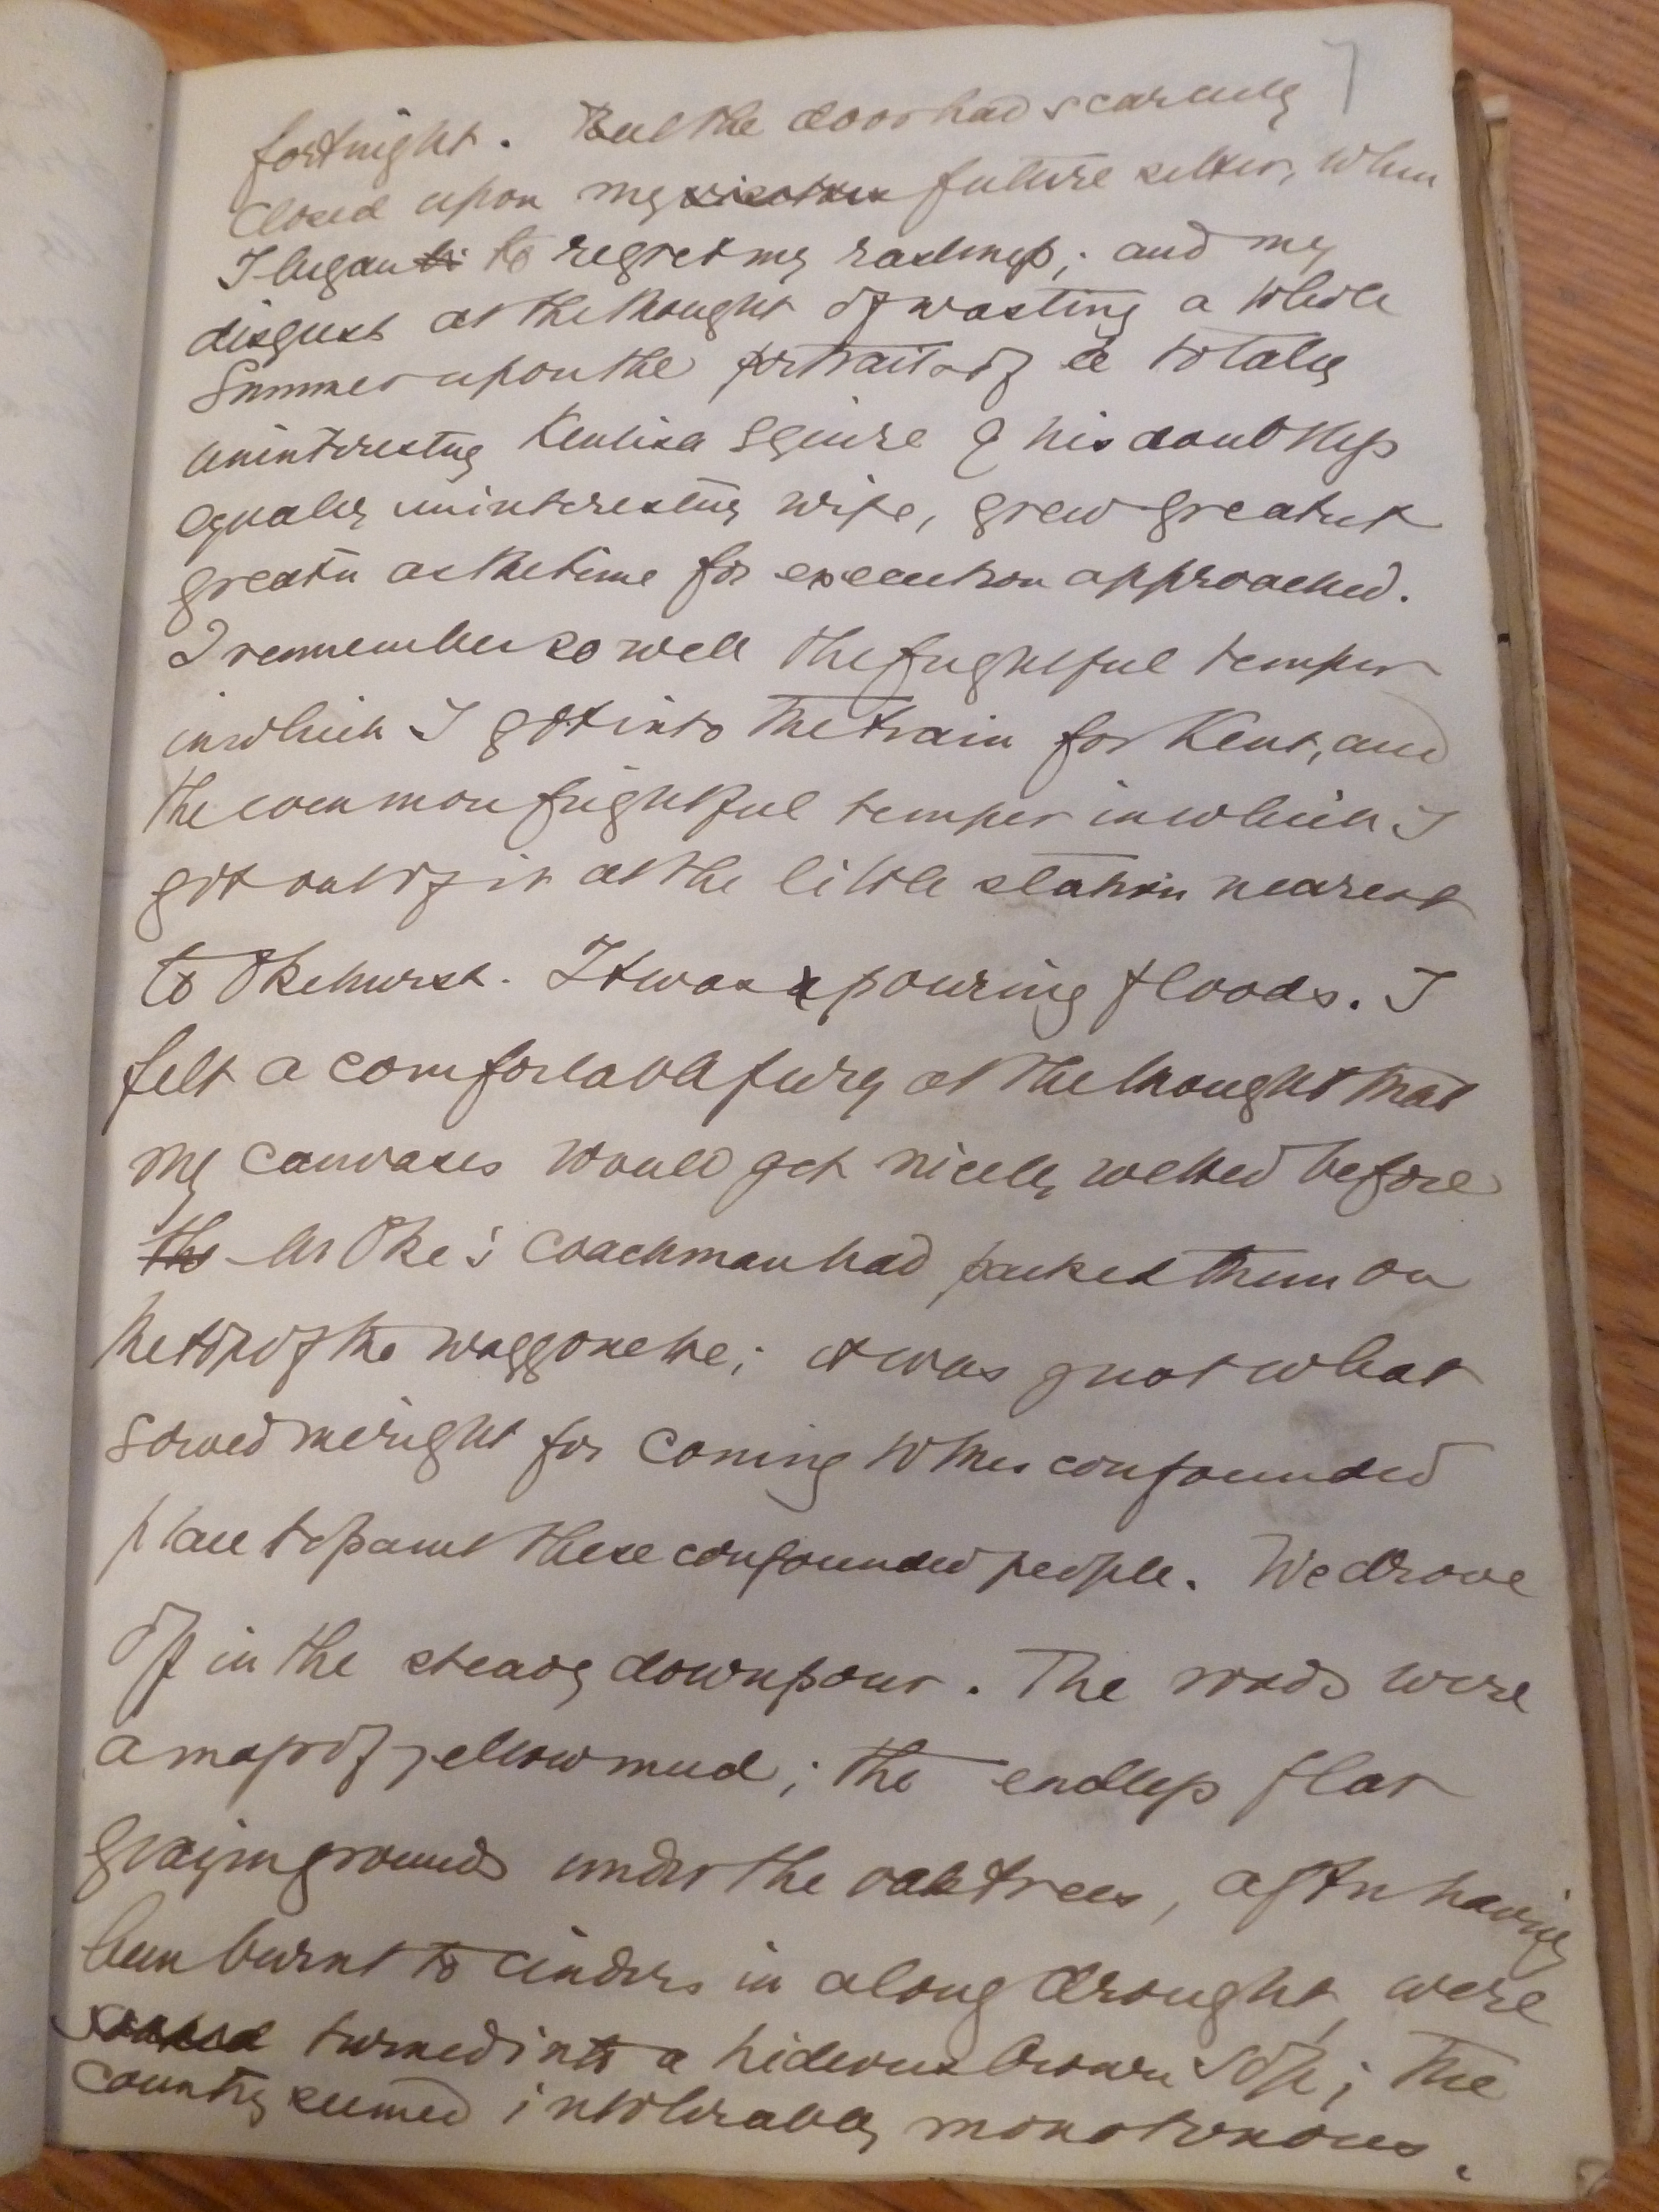 7
fortnight. But the door had scarcely
closed upon my visitors future sitter, when
I began to to regret my rashness; and my
disgust at the thought of wasting a whole
Summer upon the portrait of a totally
uninteresting Kentish Squire & his doubtless
equally uninteresting wife, grew greater &
greater as the time for execution approached.
I remember so well the frightful temper
in which I got into the train for Kent, and
the even more frightful temper in which I
got out of it at the little station nearest
to Okehurst. It was pouring floods. I
felt a comfortable fury at the thought that
my canvases would get nicely wetted before
the Mr Oke's coachman had packed them on
the top of the waggonette; it was just what
served me right for coming to this confounded
place to paint these confounded people. We drove
off in the steady downpour. The roads were
a mass of yellow mud; the endless flat
grazing grounds under the oaktrees, after having
been burnt to cinders in a long drought, were
soaked turned into a hideous brown sop; the
country seemed intolerably monotonous.